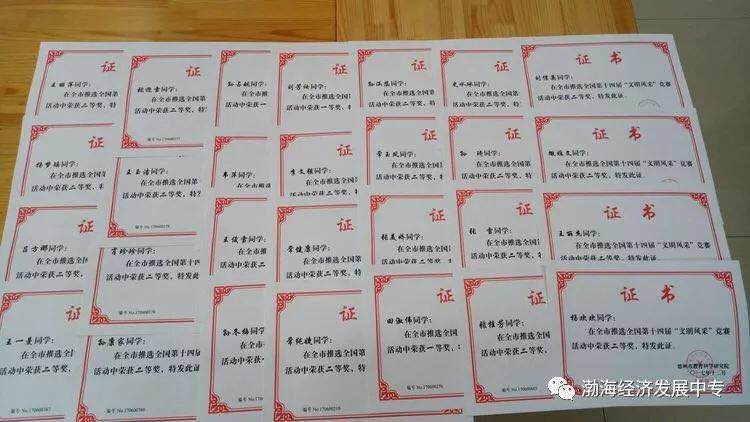 证
王丽萍同学：
在全市推选全国第
活动中荣获二等奖，特
证
张迎雪同学：
在全市推选全国第
活动中荣获二等奖，特
证
孙占航同学：
在全市推选全国
活动中荣获一
证
刘芳灿同学：
在全市推选全国第
活动中荣获一等奖，
证
同学：
在全市推选全国
活动中荣获二等奖，
证
史水冰同学：
在全市推选全国
活动中荣获二等奖
证书
刘佳美同学：
在全市推选全国第十四届“文明风采”竞赛
活动中荣获二等奖，特发此证。
证
杨梦瑶同学：
在全市推选全国
活动中荣获二等奖，特
证
王玉洁同学：
在全市推选全国第
活动中荣获二等奖，特
编号 No.170600278
证
韦萍同学：
在全市推选全
活动中荣获二
证
李文雅同学：
在全市推选全国第
活动中荣获二等奖，特
证
常玉凤同学：
在全市推选全国
活动中荣获二等奖，
证
孙 婷同学：
在全市推选全国
活动中荣获二等奖，
证书
文同学：
在全市推选全国第十四届“文明风采”竞赛
活动中荣获二等奖，特发此证。
证
吕方娜同学：
在全市推选全国
活动中荣获二等奖，
证
宵珍珍同学：
在全市推选全国第
活动中荣获二等奖，特发
证
王俊雪同学：
在全市推选全国
活动中荣获二
证
常健康同学：
在全市推选全国第
活动中荣获二等奖，特
证
张美婷同学：
在全市推选全国
活动中荣获二等奖，
证
张 雪同学：
在全市推选全国
活动中荣获二等奖，特
证书
王丽杰同学：
在全市推选全国第十四届“文明风采”竞赛
活动中荣获二等奖，特发此证。
证
王一曼同学：
在全市推选全国第
活动中荣获二等奖，特发
编号 No.170600767
证
孙康家同学：
在全市推选全国第十四
活动中荣获二等奖，特发此证
编号 No.170600760
证
孙冬梅同学：
在全市推选全国
活动中荣获二
证
常纯媛同学：
在全市推选全国第
活动中荣获二等奖，特
编号 No.170600219
证
田淑伟同学：
在全市推选全国
活动中荣获一等奖，
编号 No.170600276
证
张桂芳同学：
在全市推选全国
活动中荣获二等奖，特
证书
杨欢欢同学：
在全市推选全国第十四届“文明风采”竞赛
活动中荣获二等奖，特发此证。
教育科学研究院
二〇一七年十二月
渤海经济发展中专